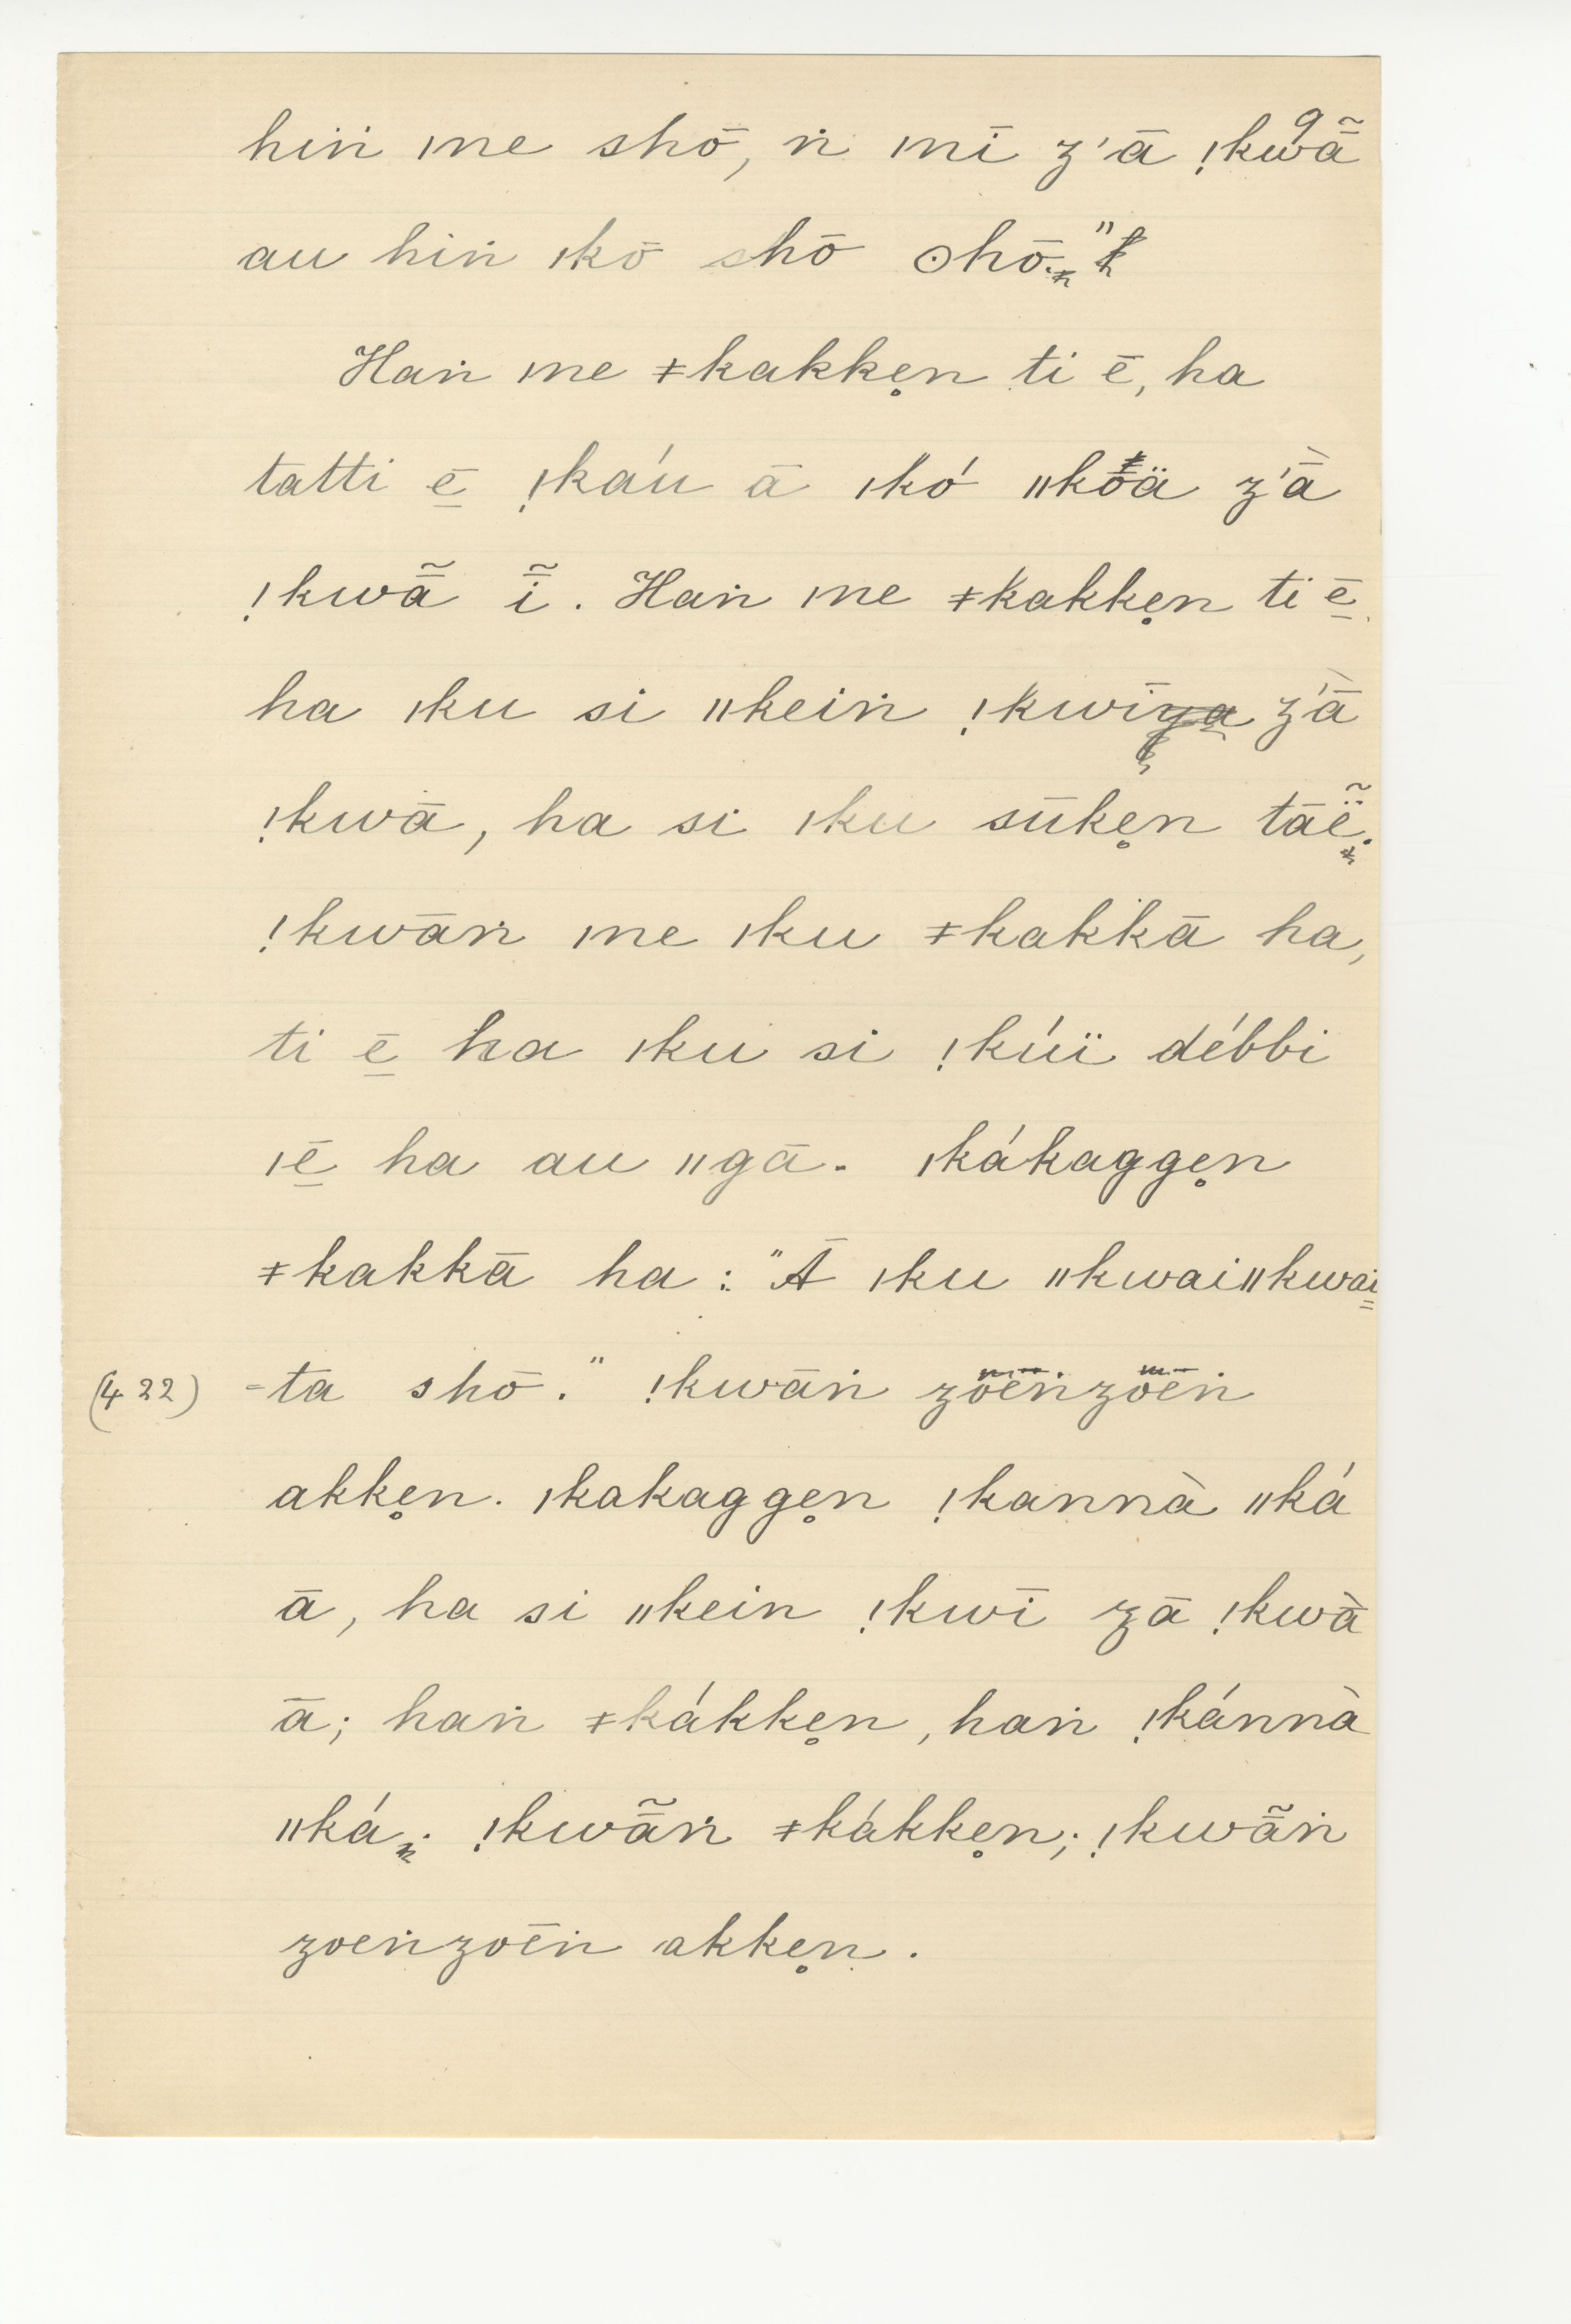 9
hiṅ ǀne shō, ṅ ǀnī z'ā ǃkwā̃
au hiṅ ǀkō shō ʘhō."
Haṅ ǀne ǂkakken̥ ti ē, ha
tatti ē̱ ǃkáu ā ǀkó ǁkōä z'ā̀
ǃkwā̃ ī̃. Haṅ ǀne ǂkakken̥ ti ē̱
ha ǀku si ǁkeiṅ ǃkwī z'ā̀
ǃkwā, ha si ǀku sūken̥ tāë̃.
ǃkwāṅ ǀne ǀku ǂkakkā ha,
ti ē̱ ha ǀku si ǃkúï débbi
ǀē̱ ha au ǁgā. ǀkákaggen̥
ǂkakkā ha: "Ā ǀku ǁkwaiǁkwai
(422) =ta shō." ǃkwāṅ zoëṅzoēṅ
akken̥. ǀkakaggen̥ ǃkannà ǁká
ā, ha si ǁkein ǃkwī zā ǃkwā̀
ā; haṅ ǂkákken̥, haṅ ǃkánnà
ǁká. ǃkwā̃ṅ ǂkákken̥; ǃkwā̃ṅ
zoeṅzoēṅ akken̥.